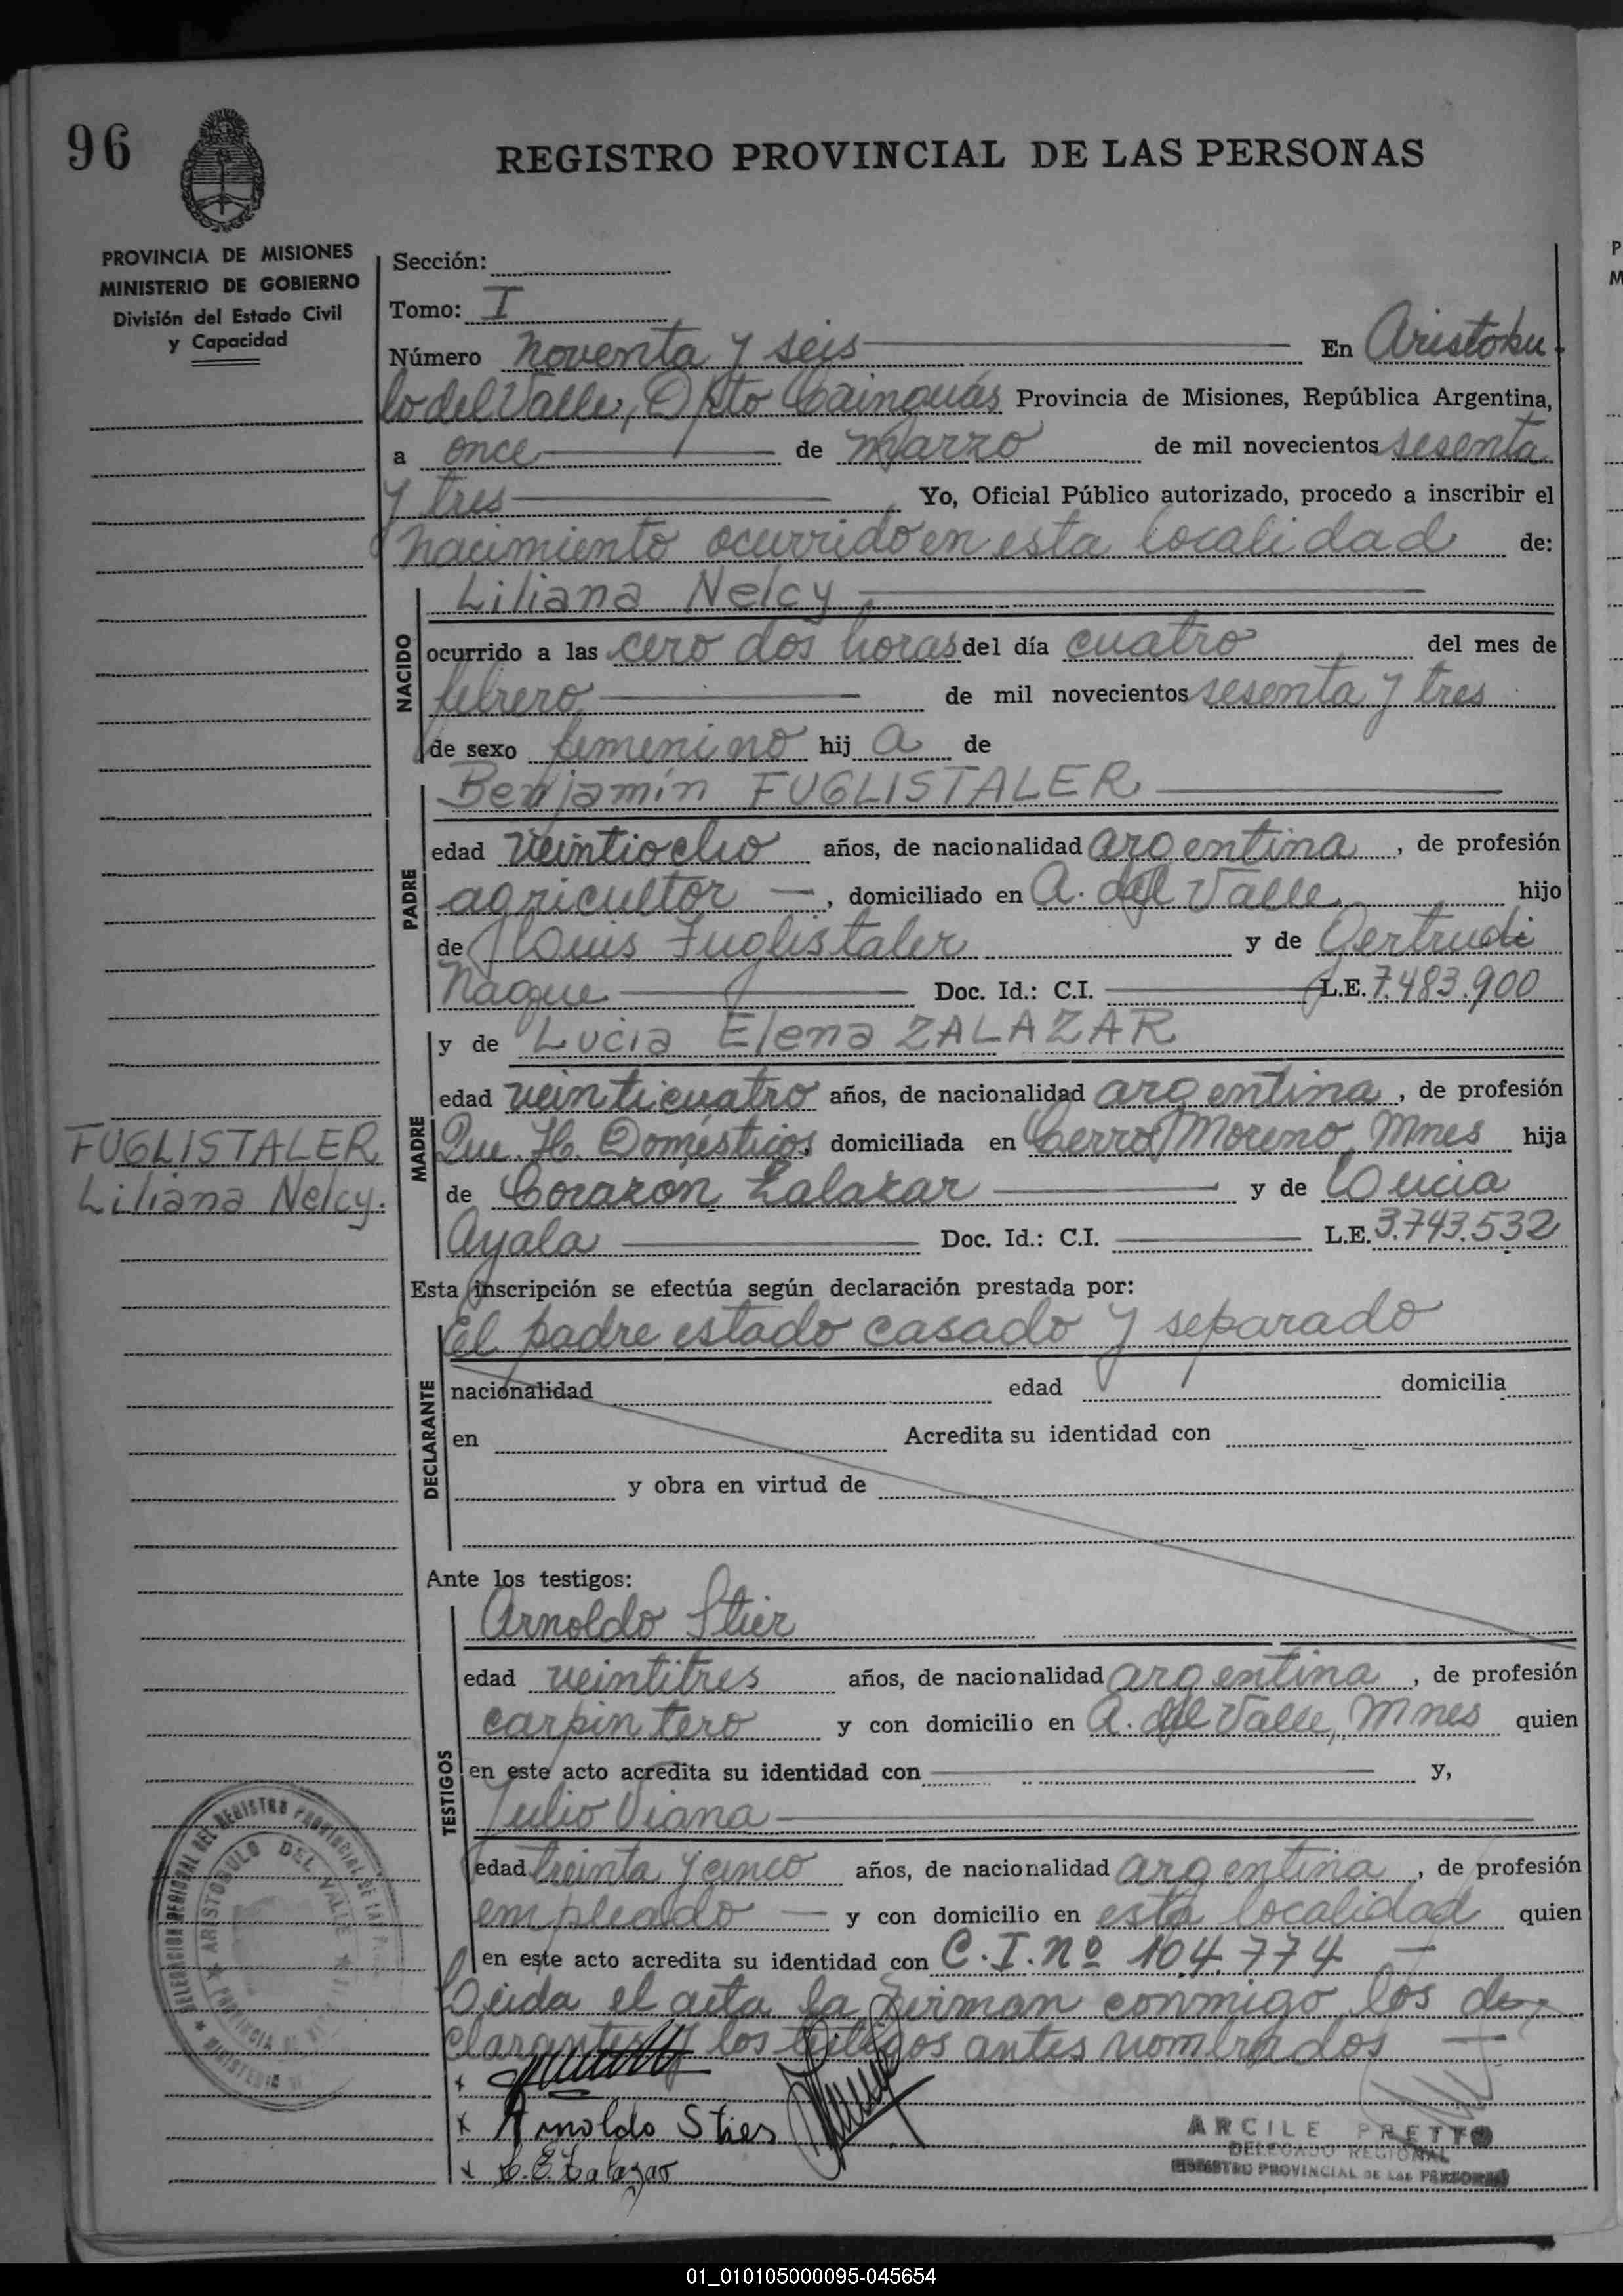 96
REGISTRO PROVINCIAL DE LAS PERSONAS
PROVINCIA DE MISIONES
MINISTERIO DE GOBIERNO
División del Estado Civil
y Capacidad
Sección:
Tomo: I
Número noventa y seis En Aristobu-
lo del Valle, Dpto Cainguás Provincia de Misiones, República Argentina,
a once de marzo de mil novecientos sesenta
y tres Yo, Oficial Público autorizado, procedo a inscribir el
nacimiento ocurrido en esta localidad de:
NACIDO
Liliana Nelcy
ocurrido a las cero dos horas del día cuatro del mes de
febrero de mil novecientos sesenta y tres
de sexo femenino hij a de
PADRE
Benjamín FUGLISTALER
edad veintiocho años, de nacionalidad argentina, de profesión
agricultor, domiciliado en A. del Valle hijo
de Louis Fuglistaler y de Gertrudi
Nague Doc. Id.: C.I. L.E. 7.483.900
MADRE
y de Lucia Elena ZALAZAR
edad veinticuatro años, de nacionalidad argentina, de profesión
Que. H. Domésticos, domiciliada en Cerro Moreno, Mnes hija
de Corazon Zalazar y de Lucia
Ayala Doc. Id.: C.I. L.E. 3.743.532
FUGLISTALER
Liliana Nelcy.
Esta inscripción se efectúa según declaración prestada por:
DECLARANTE
El padre estado casado y separado
nacionalidad edad domicilia
en Acredita su identidad con
y obra en virtud de
Ante los testigos:
TESTIGOS
Arnoldo Stier
edad veintitres años, de nacionalidad argentina, de profesión
carpintero y con domicilio en A. del Valle, Mnes quien
en este acto acredita su identidad con y,
Julio Viana
edad treinta y cinco años, de nacionalidad argentina, de profesión
empleado y con domicilio en esta localidad quien
en este acto acredita su identidad con C.I.Nº 104.774
Leida el acta la firman conmigo los de-
clarantes y los testigos antes nombrados
Arnoldo Sties
L.E. Zalazar
ARCILE PRETTO
DELEGADO REGIONAL
REGISTRO PROVINCIAL DE LAS PERSONAS
DELEGACION REGIONAL DEL REGISTRO PROVINCIAL DE LAS
ARISTOBULO DEL VALLE
01_010105000095-045654